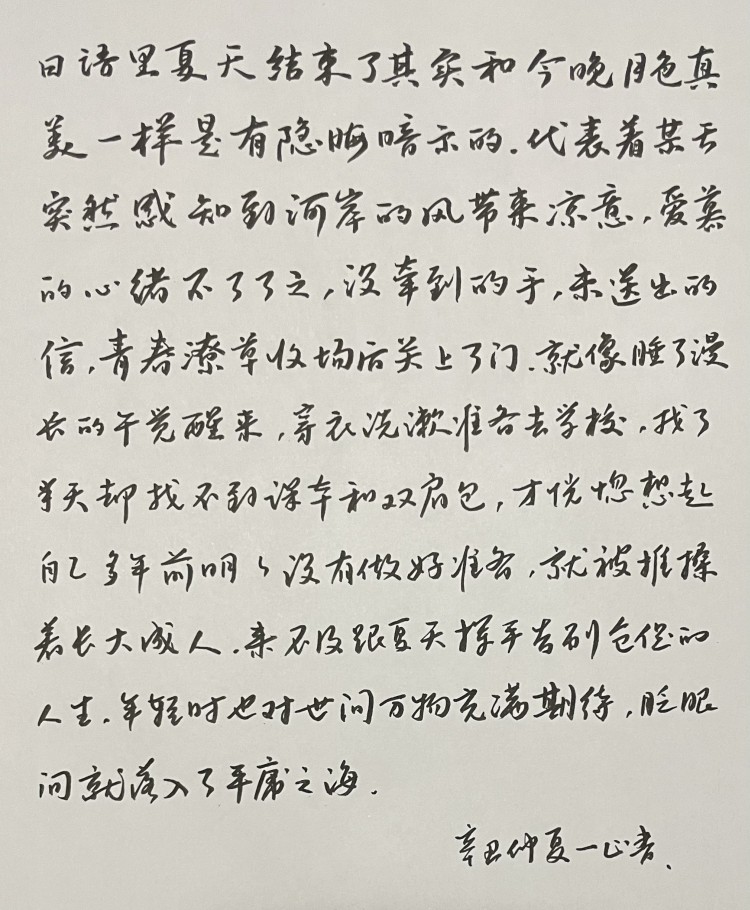 日语里夏天结束了其实和今晚月色真
美一样是有隐晦暗示的.代表着某天
突然感知到河岸的风带来凉意,爱慕
的心绪不了了之,没牵到的手,未送出的
信,青春潦草收场后关上了门.就像睡了漫
长的午觉醒来,穿衣洗漱准备去学校,找了
半天却找不到课本和双肩包,才恍惚想起
自己多年前明々没有做好准备,就被推搡
着长大成人.来不及跟夏天挥手告别仓促的
人生.年轻时也对世间万物充满期待,眨眼
间就落入了平庸之海.
辛丑仲夏一止书、